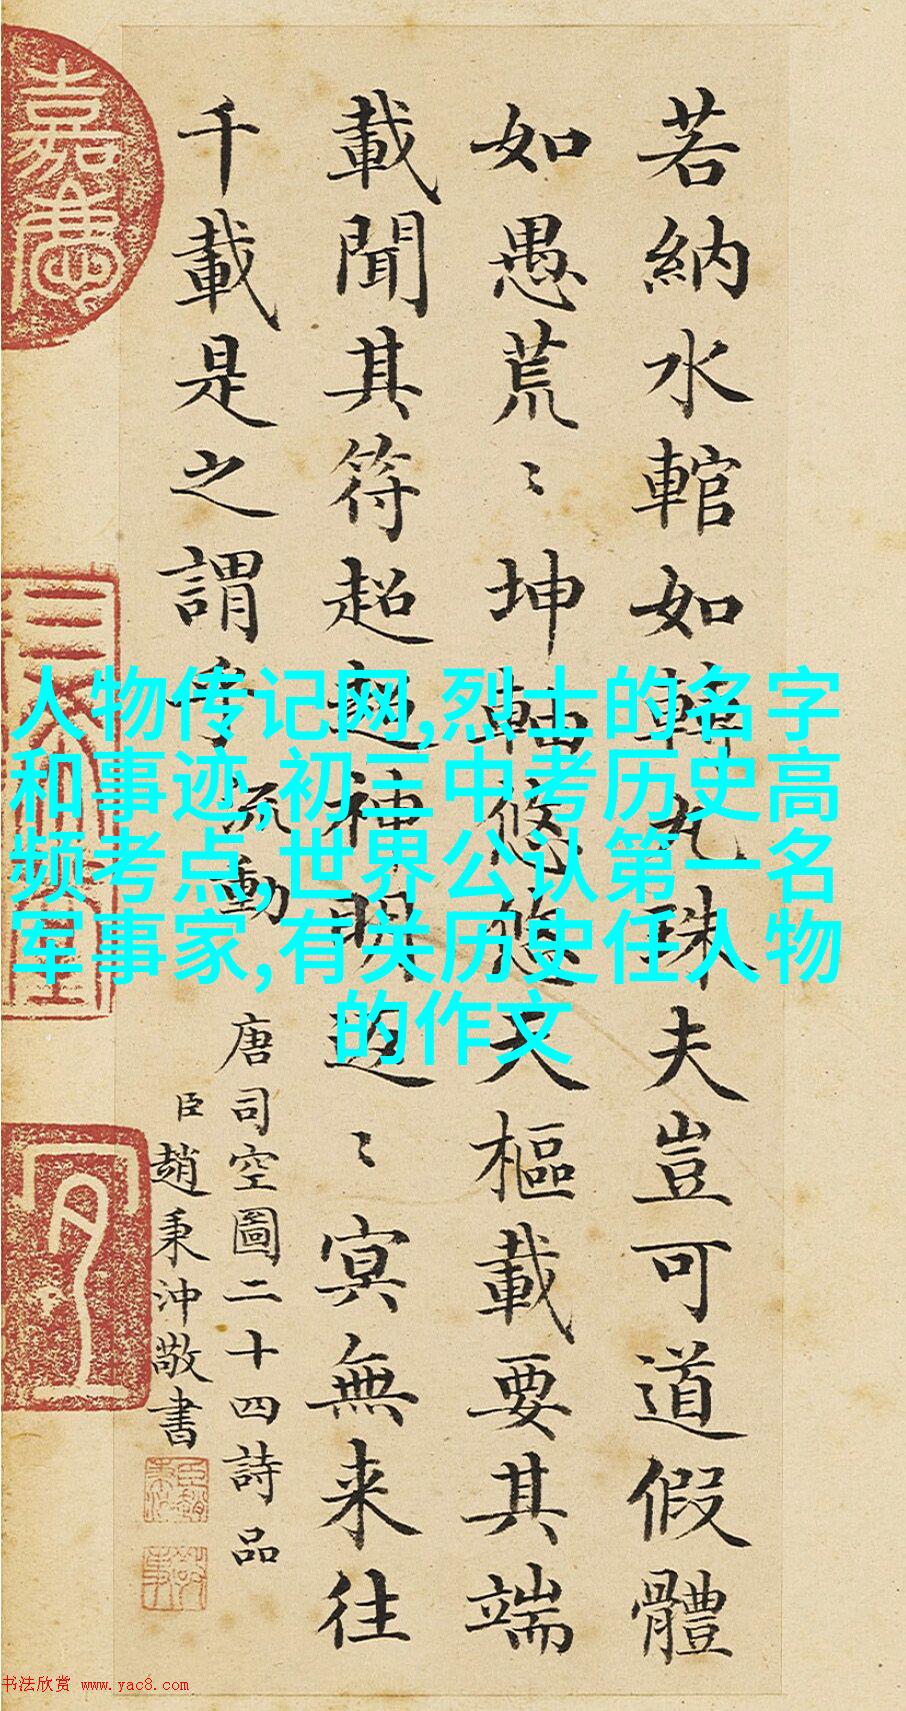 若納水輨如轉丸珠夫豈可道假體
如愚荒〻坤軸悠悠天樞載要其端
載聞其符超超神明返〻冥無来往
千載是之謂乎流動
唐司空圖二十四詩品
臣趙秉沖敬書
嘉慶
人物传记网,烈士的名字
和事迹,初三中考历史高
频考点,世界公认第一名
军事家,有关历史任人物
的作文
书法欣赏 www.yac8.com